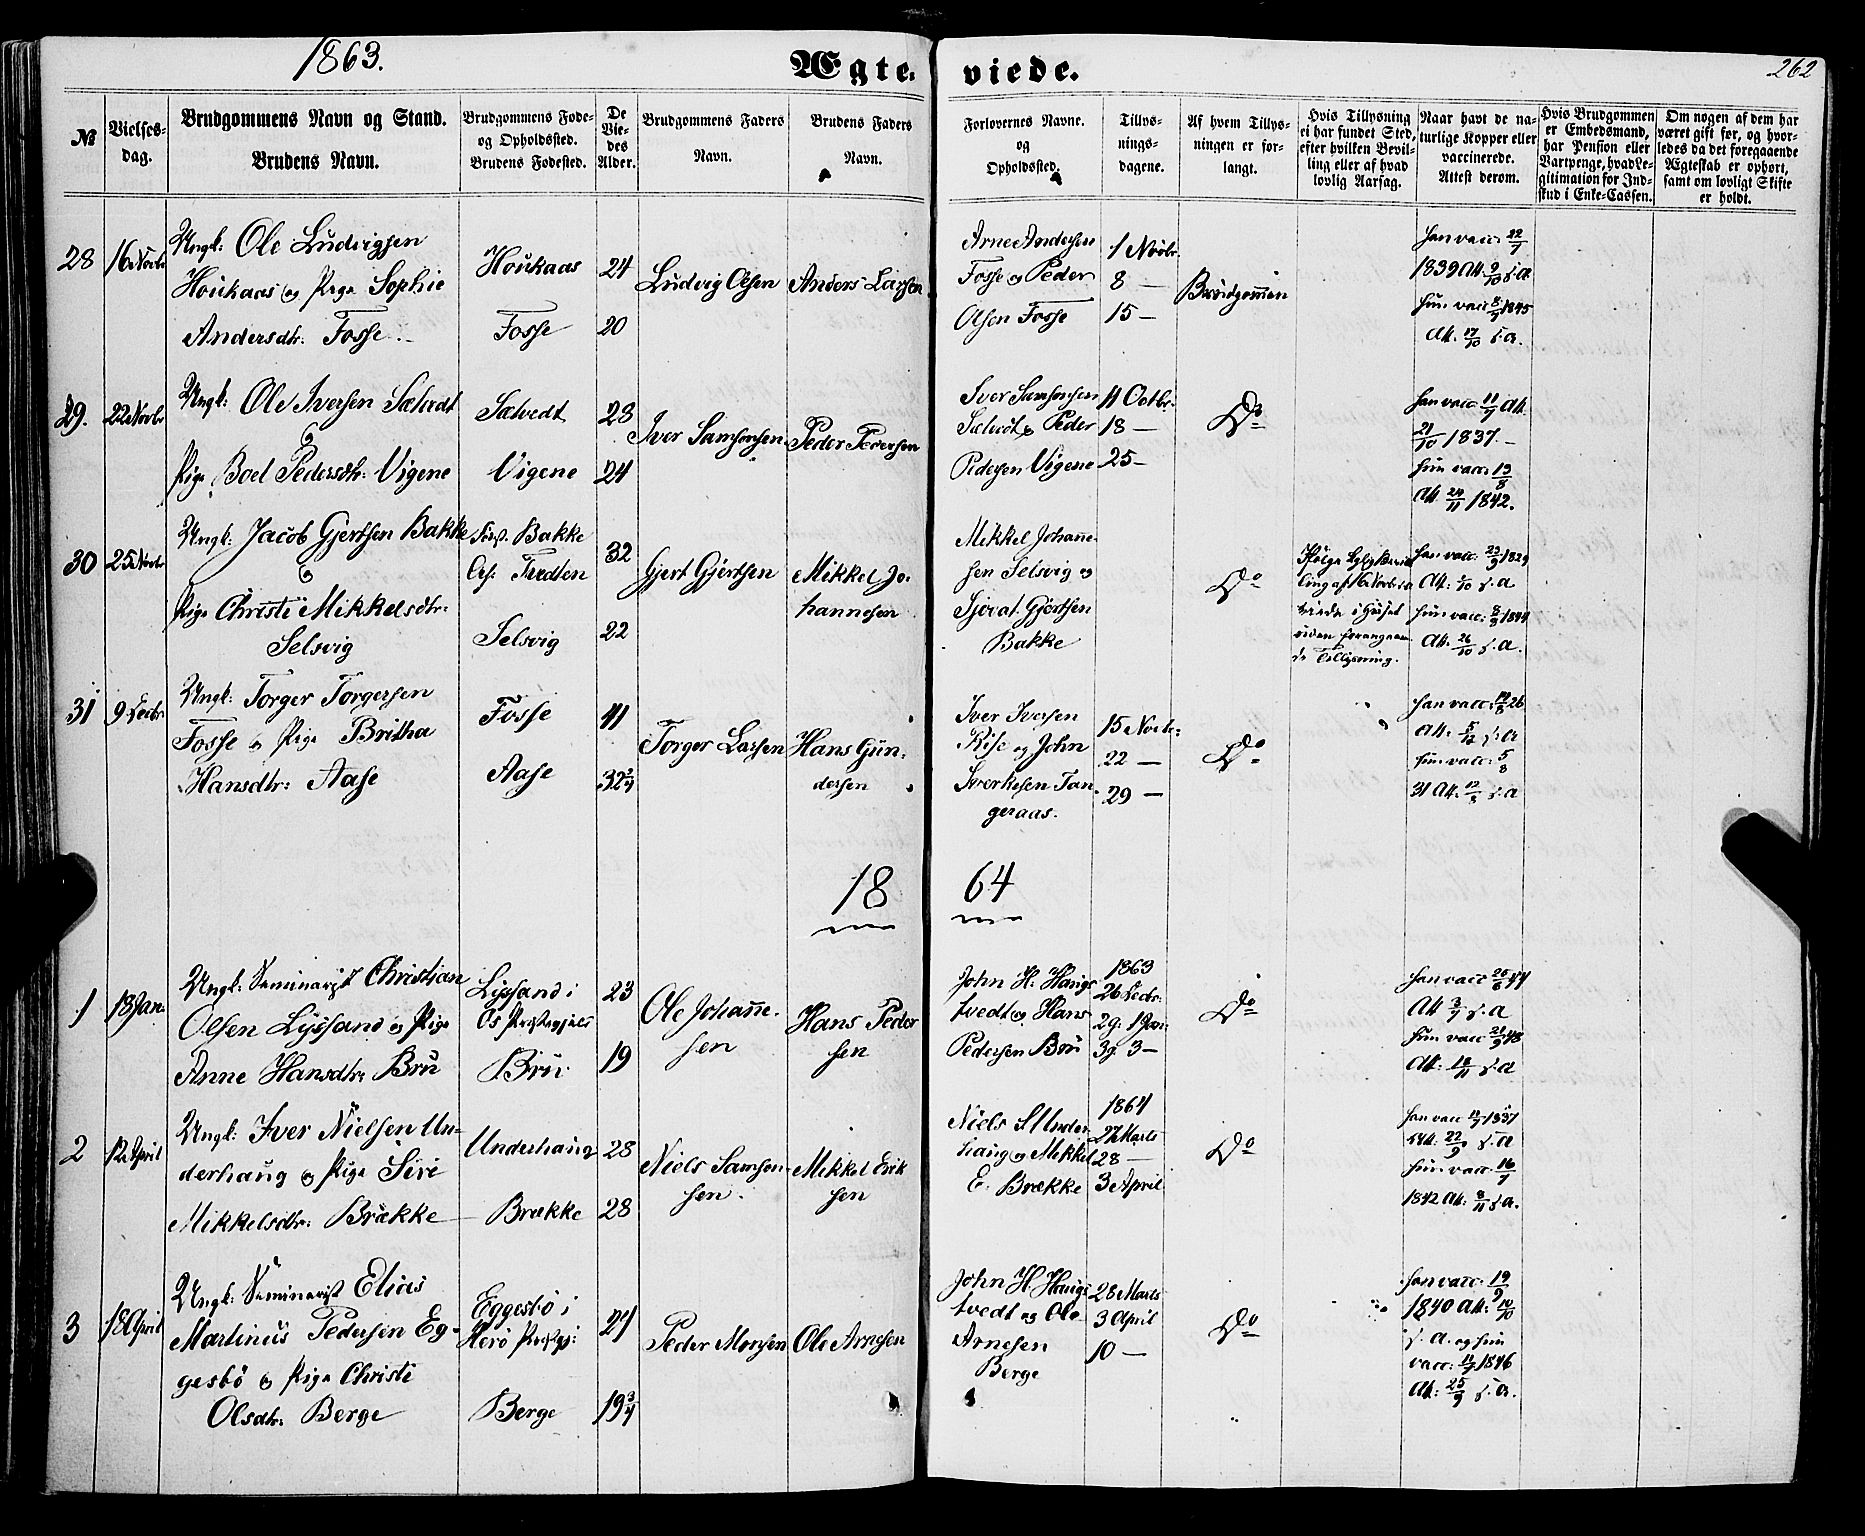 1863.
Ægte-
viede.
262
№
Vielses-
dag.
Brudgommens Navn og Stand.
Brudens Navn.
Brudgommens Føde-
og Opholdssted.
Brudens Fødested.
De
Vie-
des
Alder.
Brudgommens Faders
Navn.
Brudens Faders
Navn.
Forlovernes Navne.
og
Opholdssted.
Tillys-
nings-
dagene.
Af hvem Tillys-
ningen er for-
langt.
Hvis Tillysning
ei har fundet Sted,
efter hvilken Bevil-
ling eller af hvad
lovlig Aarsag.
Naar havt de na-
turlige Kopper eller
vaccinerede.
Attest derom.
Hvis Brudgommen
er Embedsmand,
har Pension eller
Vartpenge, hvad Le-
gitimation for Ind-
skud i Enke-Cassen.
Om nogen af dem har
været gift før, og hvor-
ledes da det foregaaende
Ægteskab er ophørt,
samt om lovligt Skifte
er holdt.
28
16 Novbr
Ungk: Ole Ludvigsen
Houkaas og Pige Sophie
Andersdtr: Fosse
Houkaas
Fosse
24
20
Ludvig Olsen
Anders Larsen
Arne Andersen
Fosse og Peder
Olsen Fosse
1 Novbr.
8 —
15 —
Brudgommen
Han vacc: 22/7
1839 Att. 9/10 s.a
hun vacc 8/9 1845
Att. 17/10 s.a.
29.
22 Novbr
Ungk: Ole Iversen Sætvedt
&
Pige Boel Pedersdtr: Vigene
Sætvedt
Vigene
28
24
Iver Samsonsen
Peder Pedersen
Iver Samsonsen
Sætvedt & Peder
Pedersen Vigene
11 Octbr.
18 —
25 —
Do
Han vacc: 11/9 Att.
21/10 1837. —
hun vacc: 19/8
Att 24/11 1842.
30
25 Novbr
Ungk: Jacob Gjertsen Bakke
&
Pige Christi Mikkelsdtr:
Selsvig
Bakke
Tvedten
Selsvig
32
22
Gjert Gjertsen
Mikkel Jo-
hannesen
Mikkel Johane-
sen Selsvig og
Gjertsen
Bakke
Do
Ifølge
ling af 16 Novbr
viede i Huset
uden foregaaen-
de Tillysning.
Han vacc: 23/9 1829
Att: s.a
hun vacc: 8/9 1844
Att. 26/10 s.a.
31
9 Decbr
Ungk: Torger Torgersen
Fosse & Pige Britha
Hansdtr: Aase
Fosse
Aase
41
32 3/4
Torger Larsen
Hans Gun-
dersen
Iver Iversen
Rise og John
Sverkesen Tan-
geraas.
15 Novbr:
22 —
29 —
Do
Han vacc: 26
Att: s.a
hun vacc: 5/8
31 Att: s.a
18
64
1
18 Jan.
Ungk: Seminarist Christian
Olsen Lyssand & Pige
Anne Hansdtr: Bru
Lyssand i
Os Præstegjeld
Bru
23
19
Ole Johane-
sen
Hans Peder
sen
John H. Haugs-
tvedt og Hans
Pedersen Bru
1863
26 Decbr:
2g: 1 Jan:
3g. 3 —
Do
Han vacc 26/6 44
Att 3/7 s.a
hun vacc 21/9 48
Att: 18/11 s.a
2
12 April
Ungk: Iver Nielsen Un-
derhaug & Pige Siri
Mikkelsdtr: Brække
Underhaug
Brække
28
28
Niels Samson-
sen.
Mikkel Erik
sen
Niels S Under
haug & Mikkel
E. Brække
1864
27 Marts
28 —
3 April
Do
Han vacc 1837
Att: 22/9 s.a
hun vacc: 16/7
1842 Att: 8/11 s.a.
3
18 April
Ungk: Seminarist Elias
Martinus Pedersen Eg-
gesbø & Pige Christi
Olsdtr: Berge
Eggesbø i
Herø Præstegj:
Berge
27
19 3/4
Peder Monsen
Ole Arnesen
John H. Haugs
tvedt og Ole
Arnesen
Berge
28 Marts
3 April
10 —
Do
Han vacc: 19/9
1840 Att: 10/10
s.a. og hun
vacc: 1846
Att: 25/9 s.a.